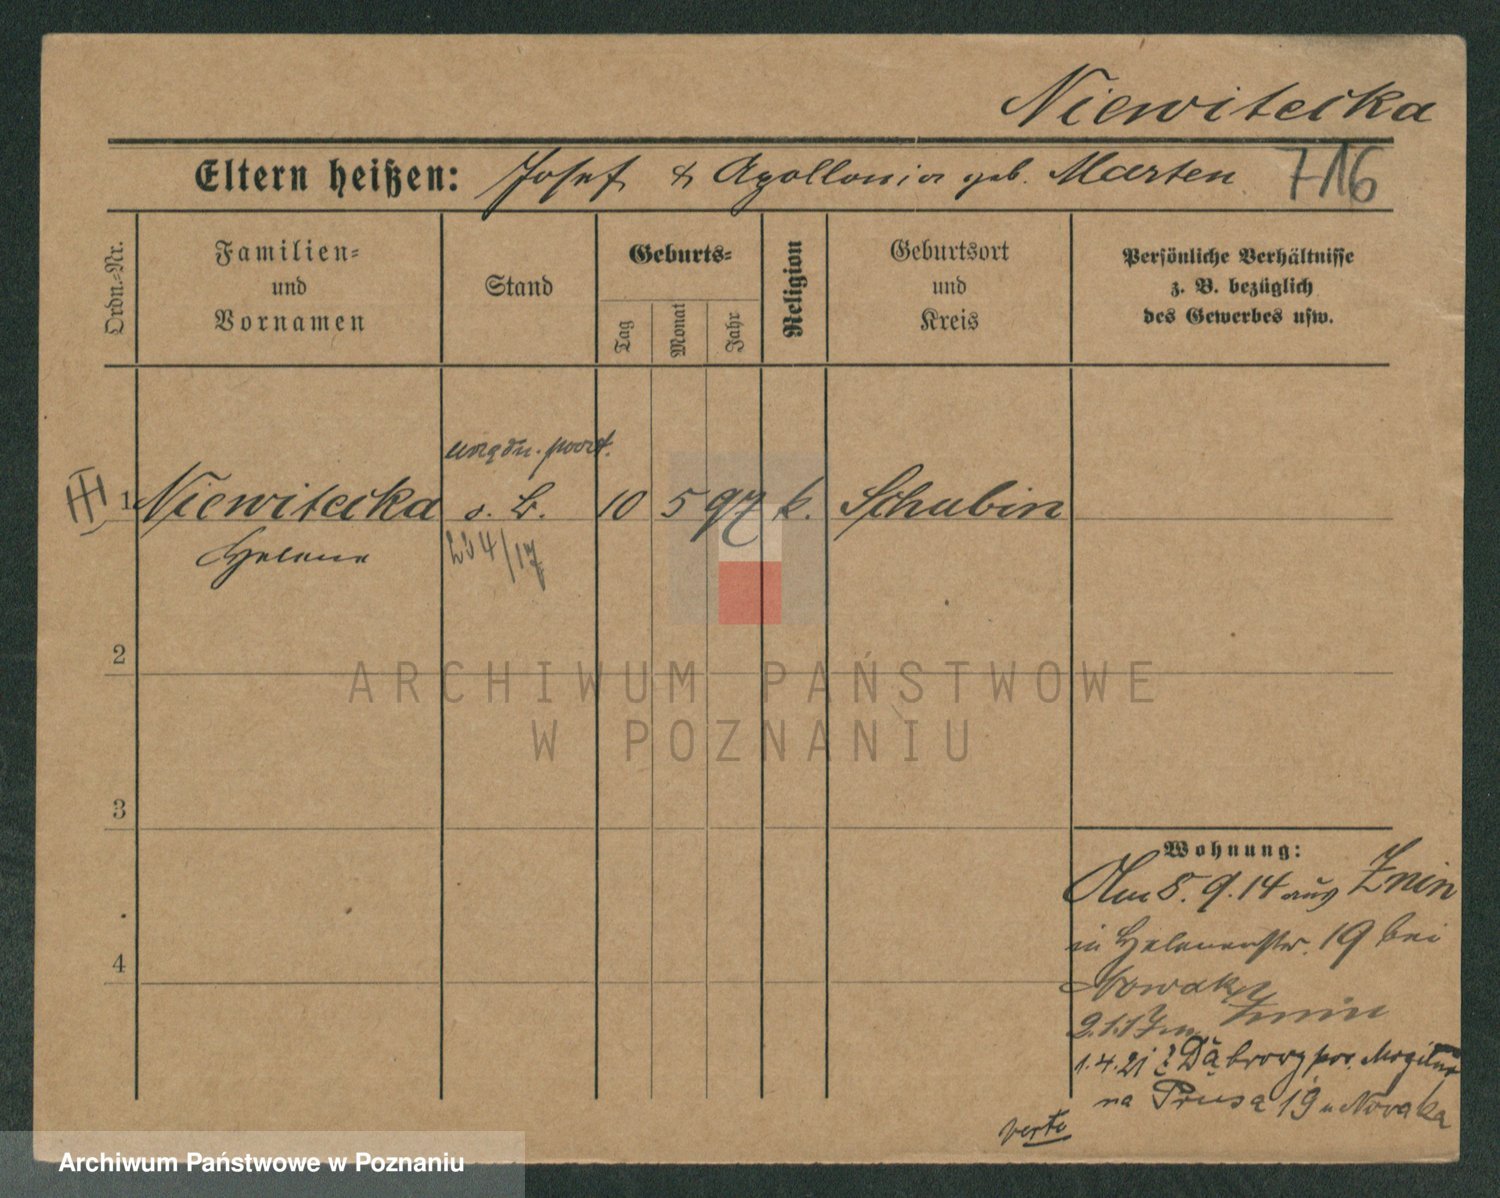 Niewitecka
Eltern heißen: Josef & Apollonia geb. Marten
716
Ordn.=Nr.
Familien=
und
Vornamen
Stand
Geburts=
Tag
Monat
Jahr
Religion
Geburtsort
und
Kreis
Persönliche Verhältnisse
z. B. bezüglich
des Gewerbes usw.
1 Niewitecka o. B. 10 5 97 k. Schubin
Helene 234/17
2
3
4
Wohnung:
Am 5.9.14 aus Znin
in Helenenstr. 19 bei
Nowak
2.1.17 Znin
1.4.21 z Dąbrowy pow. Mogilno
na Prusa 19 u Nowaka
verte
ARCHIWUM PAŃSTWOWE
W POZNANIU
Archiwum Państwowe w Poznaniu